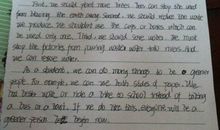 First, we should plant more trees. Trees can stop the wind
from blowing. the earth always Second, we should reduce the waste
we produce. We shouldn't use the cups or boxes which can
be used only one. Third, we should save water. We must
stop the factories from pouring waste water into rivers. And
we can reuse water.
As a student, we can do many things to be a greener
people. For example, we can use both sides of paper. We
had better walk or ride a bike to school instead of taking
a bus or a car. If we do like this, everyone will be a
greener person. begin now.